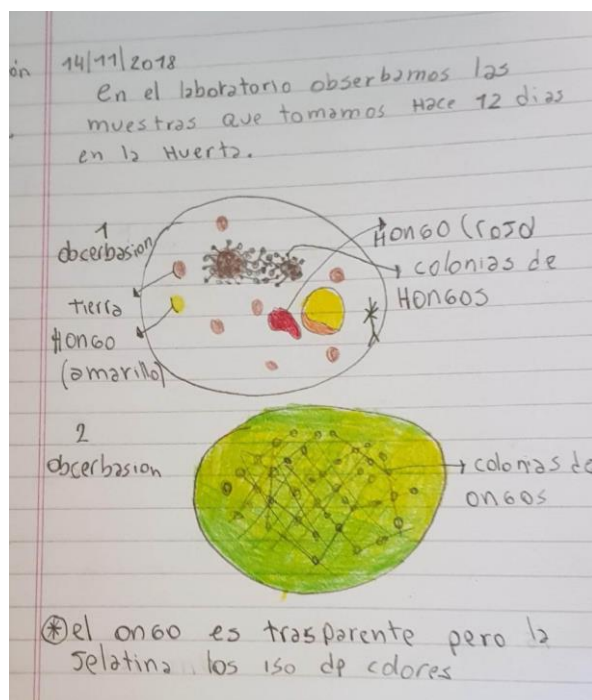 ón
14/11/2018
en el laboratorio obserbamos las
muestras que tomamos Hace 12 dias
en la Huerta.
1
obcerbasion
Hongo (rojo)
colonias de
Hongos
tierra
Hongo
(amarillo)
2
obcerbasion
colonias de
ongos
* el ongo es trasparente pero la
jelatina los iso de colores